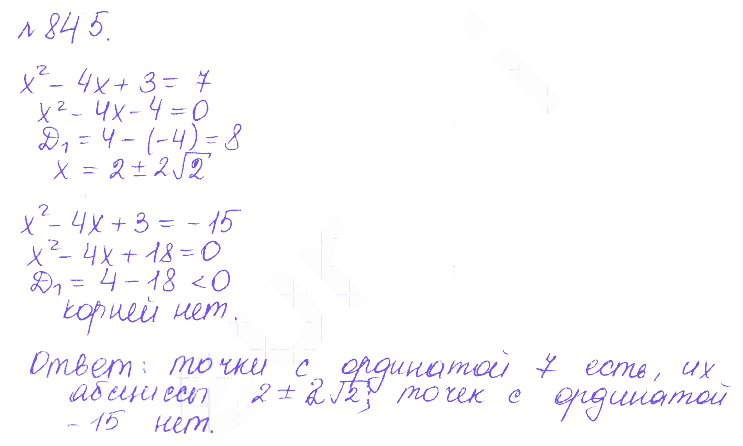 № 845.
x² - 4x + 3 = 7
x² - 4x - 4 = 0
D₁ = 4 - (-4) = 8
x = 2 ± 2√2
x² - 4x + 3 = -15
x² - 4x + 18 = 0
D₁ = 4 - 18 < 0
корней нет.
Ответ: точки с ординатой 7 есть, их
абсциссы 2 ± 2√2; точек с ординатой
-15 нет.